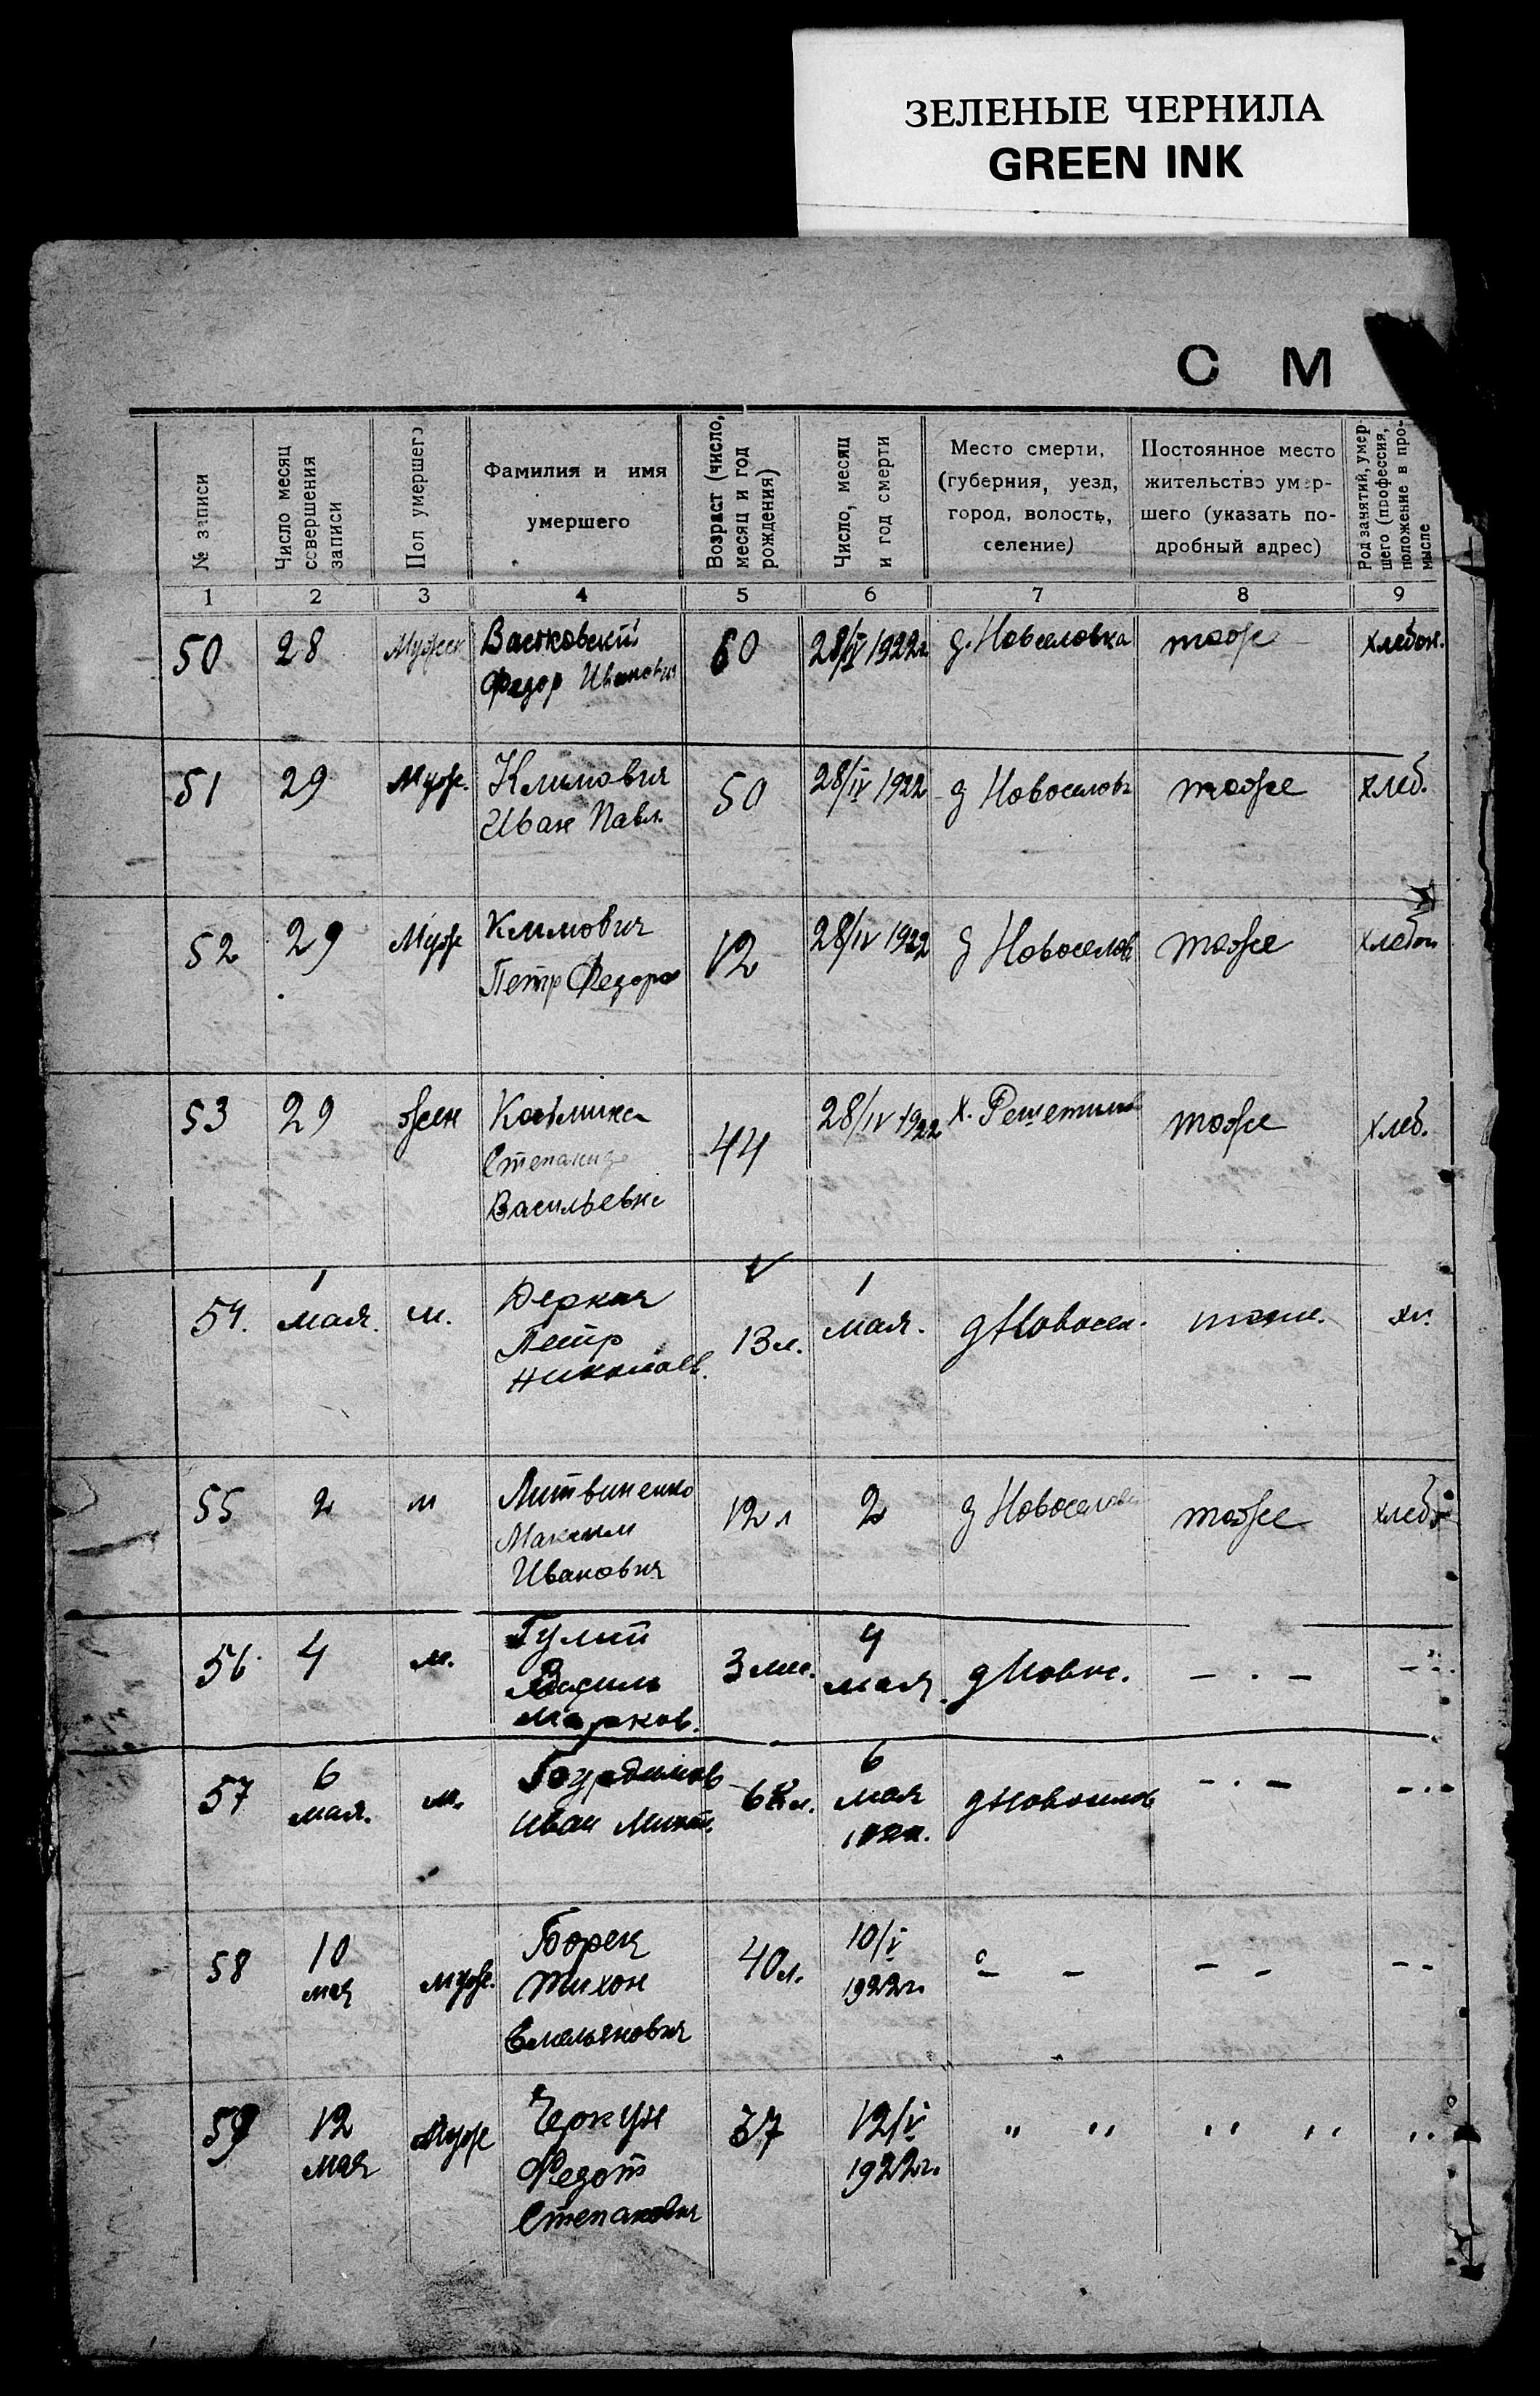 ЗЕЛЕНЫЕ ЧЕРНИЛА
GREEN INK
С М
№ записи
Число месяц
совершения
записи
Пол умершего
Фамилия и имя
умершего
Возраст (число,
месяц и год
рождения)
Число, месяц
и год смерти
Место смерти,
(губерния, уезд,
город, волость,
селение)
Постоянное место
жительство умер-
шего (указать по-
дробный адрес)
Род занятий, умер-
шего (профессия,
положение в про-
мысле
1 2 3 4 5 6 7 8 9
50 28 Мужск 60 28/IV 1922г д. Новселовка тоже хлебоп.
Федор Иванович
51 29 Муж. Климович 50 28/IV 1922 д Новоселовк тоже хлеб.
Иван Павл.
52 29 Муж Климович 12 28/IV 1922 д Новоселов тоже хлебоп
Петр Федоров
53 29 жен 44 28/IV 1922 х. Решетилов тоже хлеб.
Степанида
Васильевна
54. 1 мая. м. Деркач 13 л. 1 мая. д Новосел. тоже. хл.
Петр
Николаев.
55 2 м Литвиненко 12 л 2 д Новоселовка тоже хлеб
Максим
Иванович
56 4 м. Гулий 3 мес. 4 мая д Новос. — . — — . —
Марков.
57 6 мая. м. л. 6 мая 1922. д Новоселов — . — — . —
Иван Микит.
58 10 мая муж. Борец 40 л. 10/V 1922г. — — — — — —
Тихон
Емельянович
59 12 мая Муж Черкун 37 12/V 1922г. " " " " "
Федот
Степанович